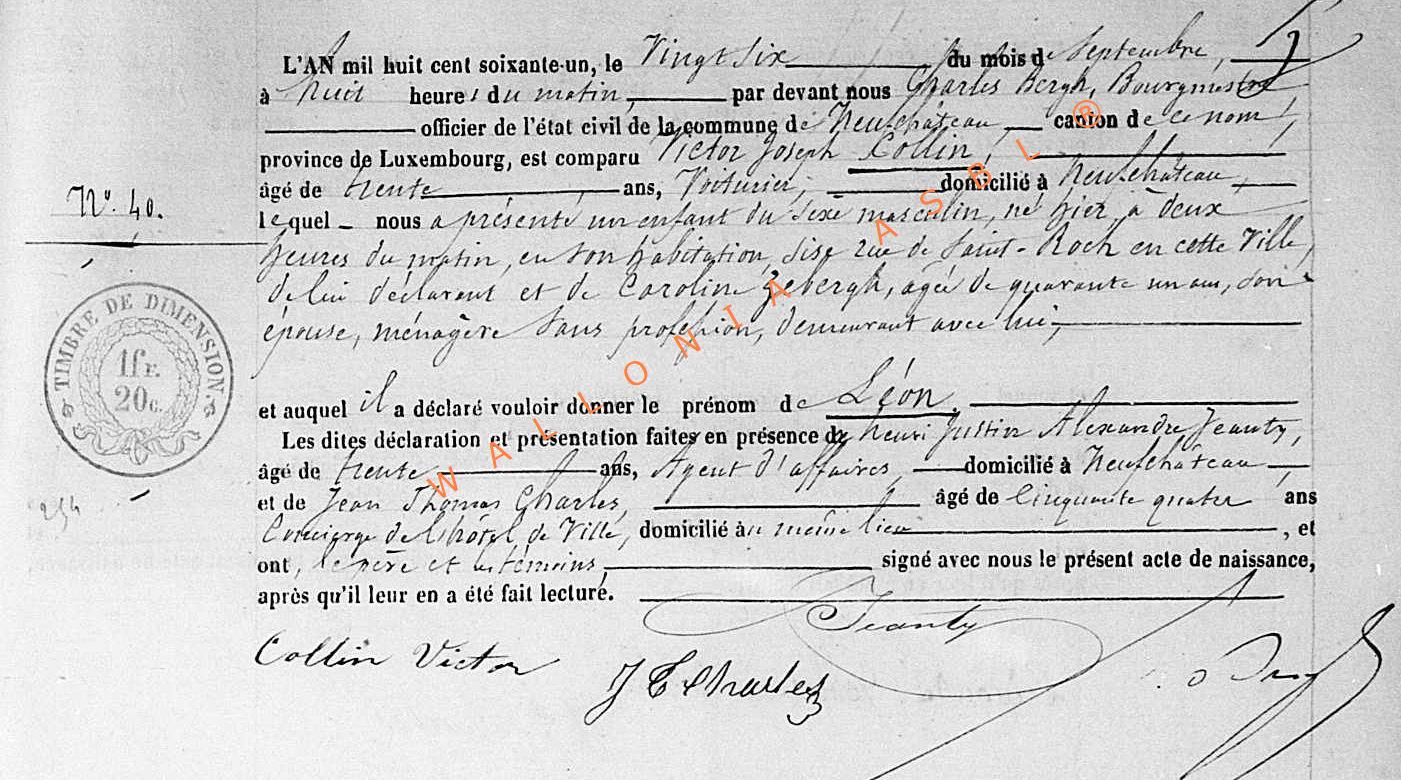 L'AN mil huit cent soixante-un, le Vingt six du mois de Septembre,
à huit heures du matin, par devant nous Charles Bergh, Bourgmestre
officier de l'état civil de la commune de Neufchâteau canton de ce nom,
province de Luxembourg, est comparu Victor Joseph Collin,
âgé de trente ans, Voiturier, domicilié à Neufchâteau,
N° 40.
lequel nous a présenté un enfant du sexe masculin, né hier à deux
heures du matin, en son habitation, sise rue de Saint-Roch en cette Ville,
de lui déclarant et de Caroline Zebergh, agée de quarante un ans, son
épouse, ménagère sans profession, demeurant avec lui,
TIMBRE DE DIMENSION.
1 fr.
20 c.
et auquel il a déclaré vouloir donner le prénom de Léon.
Les dites déclaration et présentation faites en présence de Henri Justin Alexandre Jeanty,
âgé de trente ans, Agent d'affaires, domicilié à Neufchâteau
et de Jean Thomas Charles, âgé de Cinquante quatre ans
254
Concierge de l'hôtel de Ville, domicilié au même lieu, et
ont, le père et les témoins, signé avec nous le présent acte de naissance,
après qu'il leur en a été fait lecture.
Jeanty
Collin Victor
J T Charles
WALLONIA ASBL ®